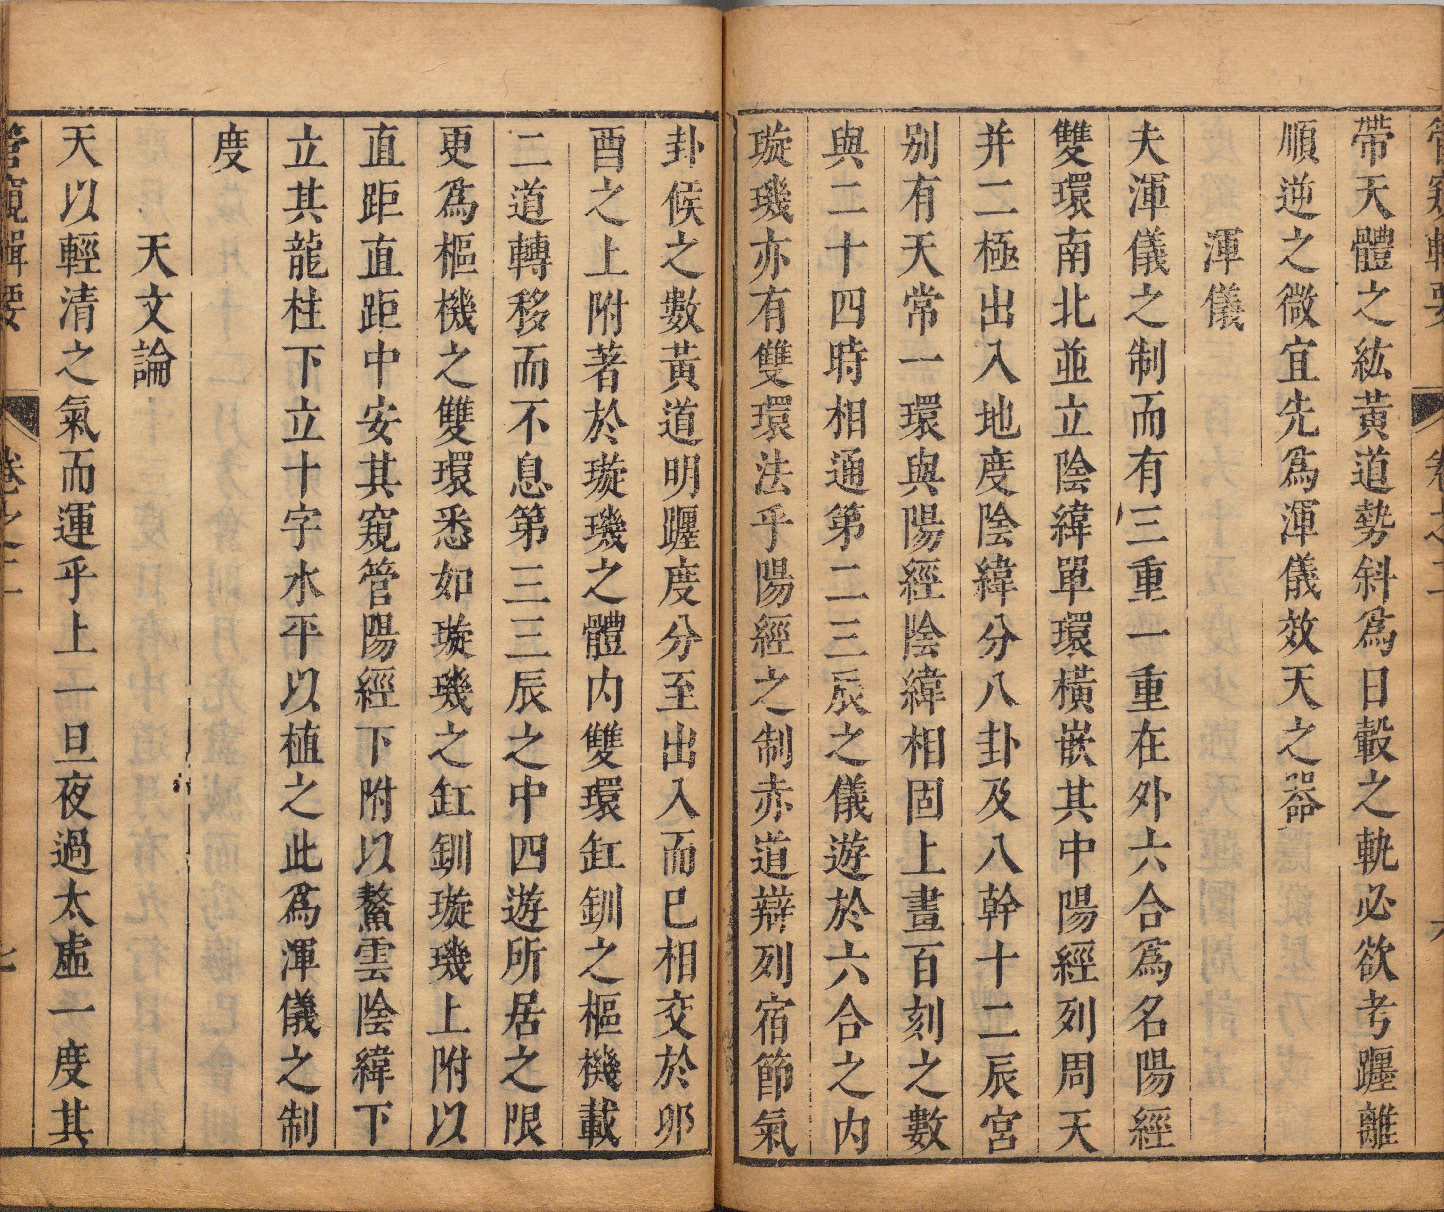 管窺輯要 卷之二 六
帶天體之紘黃道勢斜爲日轂之軌必欲考躔離
順逆之微宜先爲渾儀效天之器
渾儀
夫渾儀之制而有三重一重在外六合爲名陽經
雙環南北並立陰緯單環橫嵌其中陽經列周天
并二極出入地度陰緯分八卦及八幹十二辰宮
别有天常一環與陽經陰緯相固上晝百刻之數
與二十四時相通第二三辰之儀遊於六合之内
璇璣亦有雙環法乎陽經之制赤道辯列宿節氣
卦候之數黃道明躔度分至出入而巳相交於夘
酉之上附著於璇璣之體内雙環釭釧之樞機載
二道轉移而不息第三三辰之中四遊所居之限
更爲樞機之雙環悉如璇璣之釭釧璇璣上附以
直距直距中安其窺管陽經下附以鰲雲陰緯下
立其龍柱下立十字水平以植之此爲渾儀之制
度
天文論
天以輕清之氣而運乎上一旦夜過太虛一度其
管窺輯要 卷之二 七